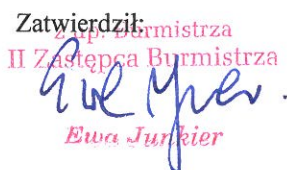 Zatwierdził:
z up. Burmistrza
II Zastępca Burmistrza
Ewa Junkier